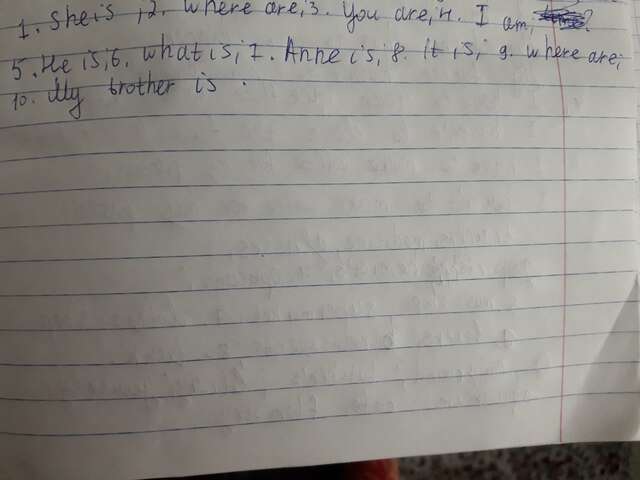 1. She is, 2. where are, 3. You are, 4. I am,
5. He is; 6. what is; 7. Anne is; 8. it is; 9. where are;
10. My brother is .